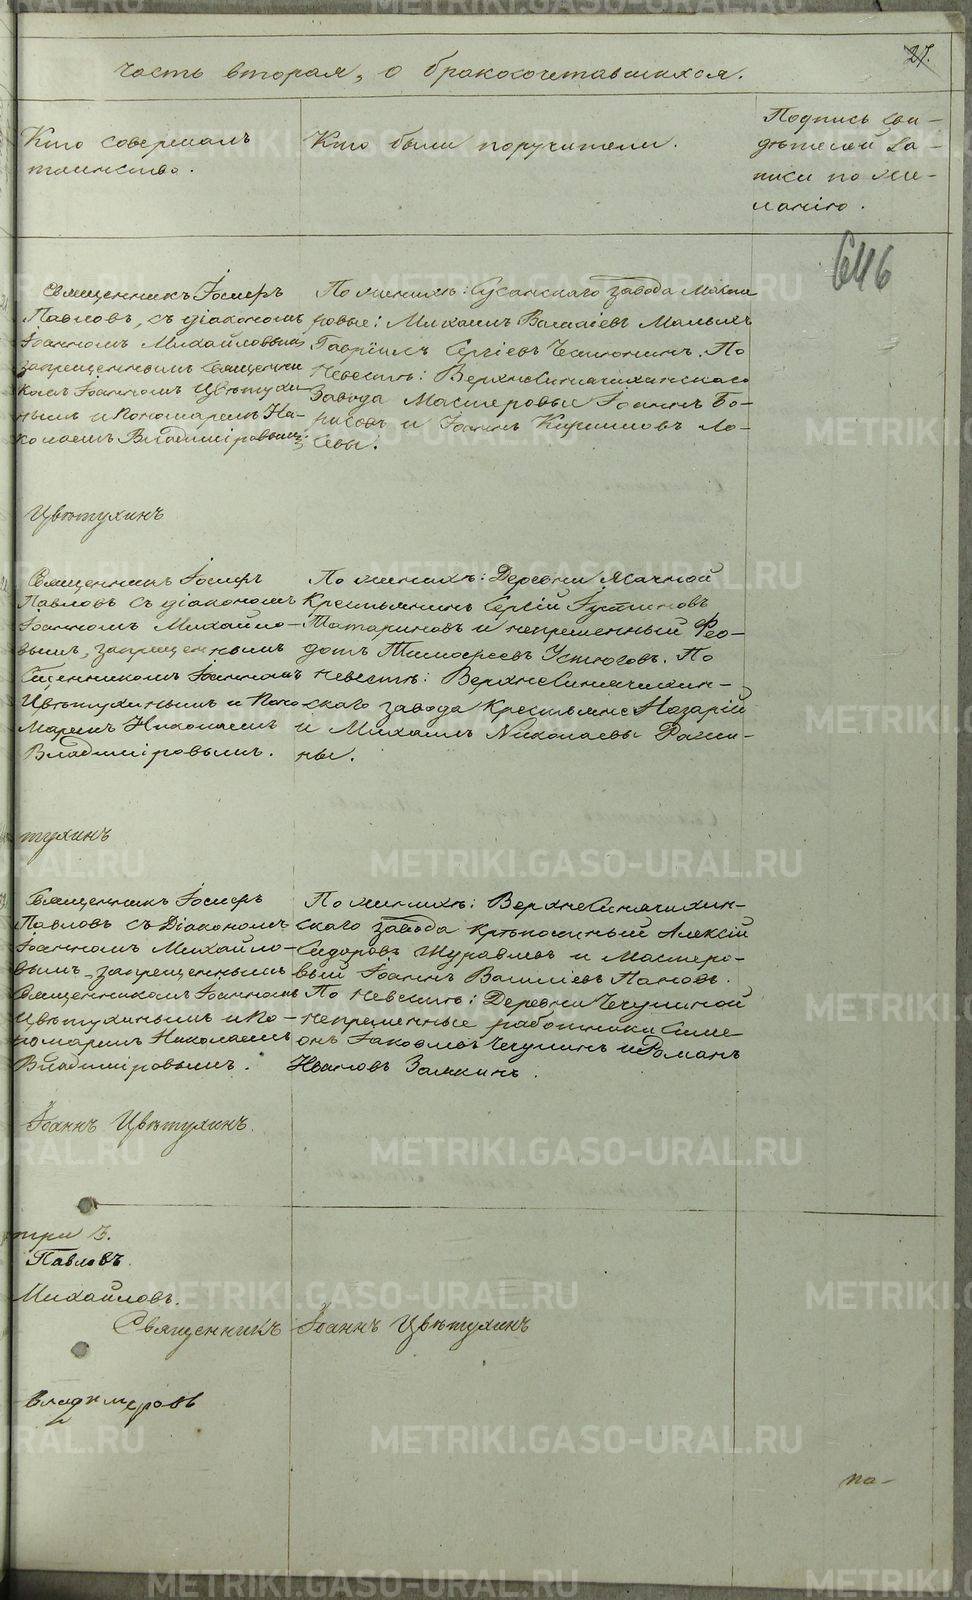 27.
Часть вторая, о бракосочетавшихся.
Кто совершалъ
таинство.
Кто были поручители.
Подпись сви-
дѣтелей за-
писи по же-
ланію.
646
Священникъ Іосифъ
Павловъ, съ діакономъ
Іоанномъ Михайловымъ
запрещеннымъ Священни
комъ Іоанномъ Цвѣтухи-
нымъ и Пономаремъ Ни-
колаемъ Владиміровымъ
По женихѣ: Сусанскаго завода Масте
ровые: Михаилъ Малыхъ
Гавріилъ Сергіевъ По
Невестѣ: Верхнесинячихинскаго
Завода Мастеровые Іоаннъ Бо-
рисовъ и Іоаннъ Кириловъ Ло-
севы.
Цвѣтухинъ
Священникъ Іосифъ
Павловъ съ діакономъ
Іоанномъ Михайло-
вымъ, запрещеннымъ
Сщенникомъ Іоанномъ
Цвѣтухинымъ и Поно
маремъ Николаемъ
Владиміровымъ.
По женихѣ: Деревни
Крестьянинъ Сергій Іустиновъ
Татариновъ и непременный Фео-
дотъ Тимофеевъ Устюговъ. По
невестѣ: Верхнесинячихин-
скаго завода Крестьяне Назарій
и Михаилъ Николаевы
ны.
тухинъ
Священникъ Іосифъ
Павловъ съ Діакономъ
Іоанномъ Михайло-
вымъ, запрещеннымъ
Священникомъ Іоанномъ
Цвѣтухинымъ и По-
номаремъ Николаемъ
Владиміровымъ.
По женихѣ: Верхнесинячихин-
скаго завода Алексій
Сидоровъ Журавлевъ и Мастеро-
вый Іоаннъ Василіевъ Пановъ.
По Невестѣ: Деревни Чечулиной
непременные работники Симе
онъ Іаковлевъ Чечулинъ и Романъ
Ивановъ Замякинъ.
Іоаннъ Цвѣтухинъ.
три 3.
Павловъ.
Михайловъ.
Священникъ Іоаннъ Цвѣтухинъ
Владимеровъ
по-
METRIKI.GASO-URAL.RU